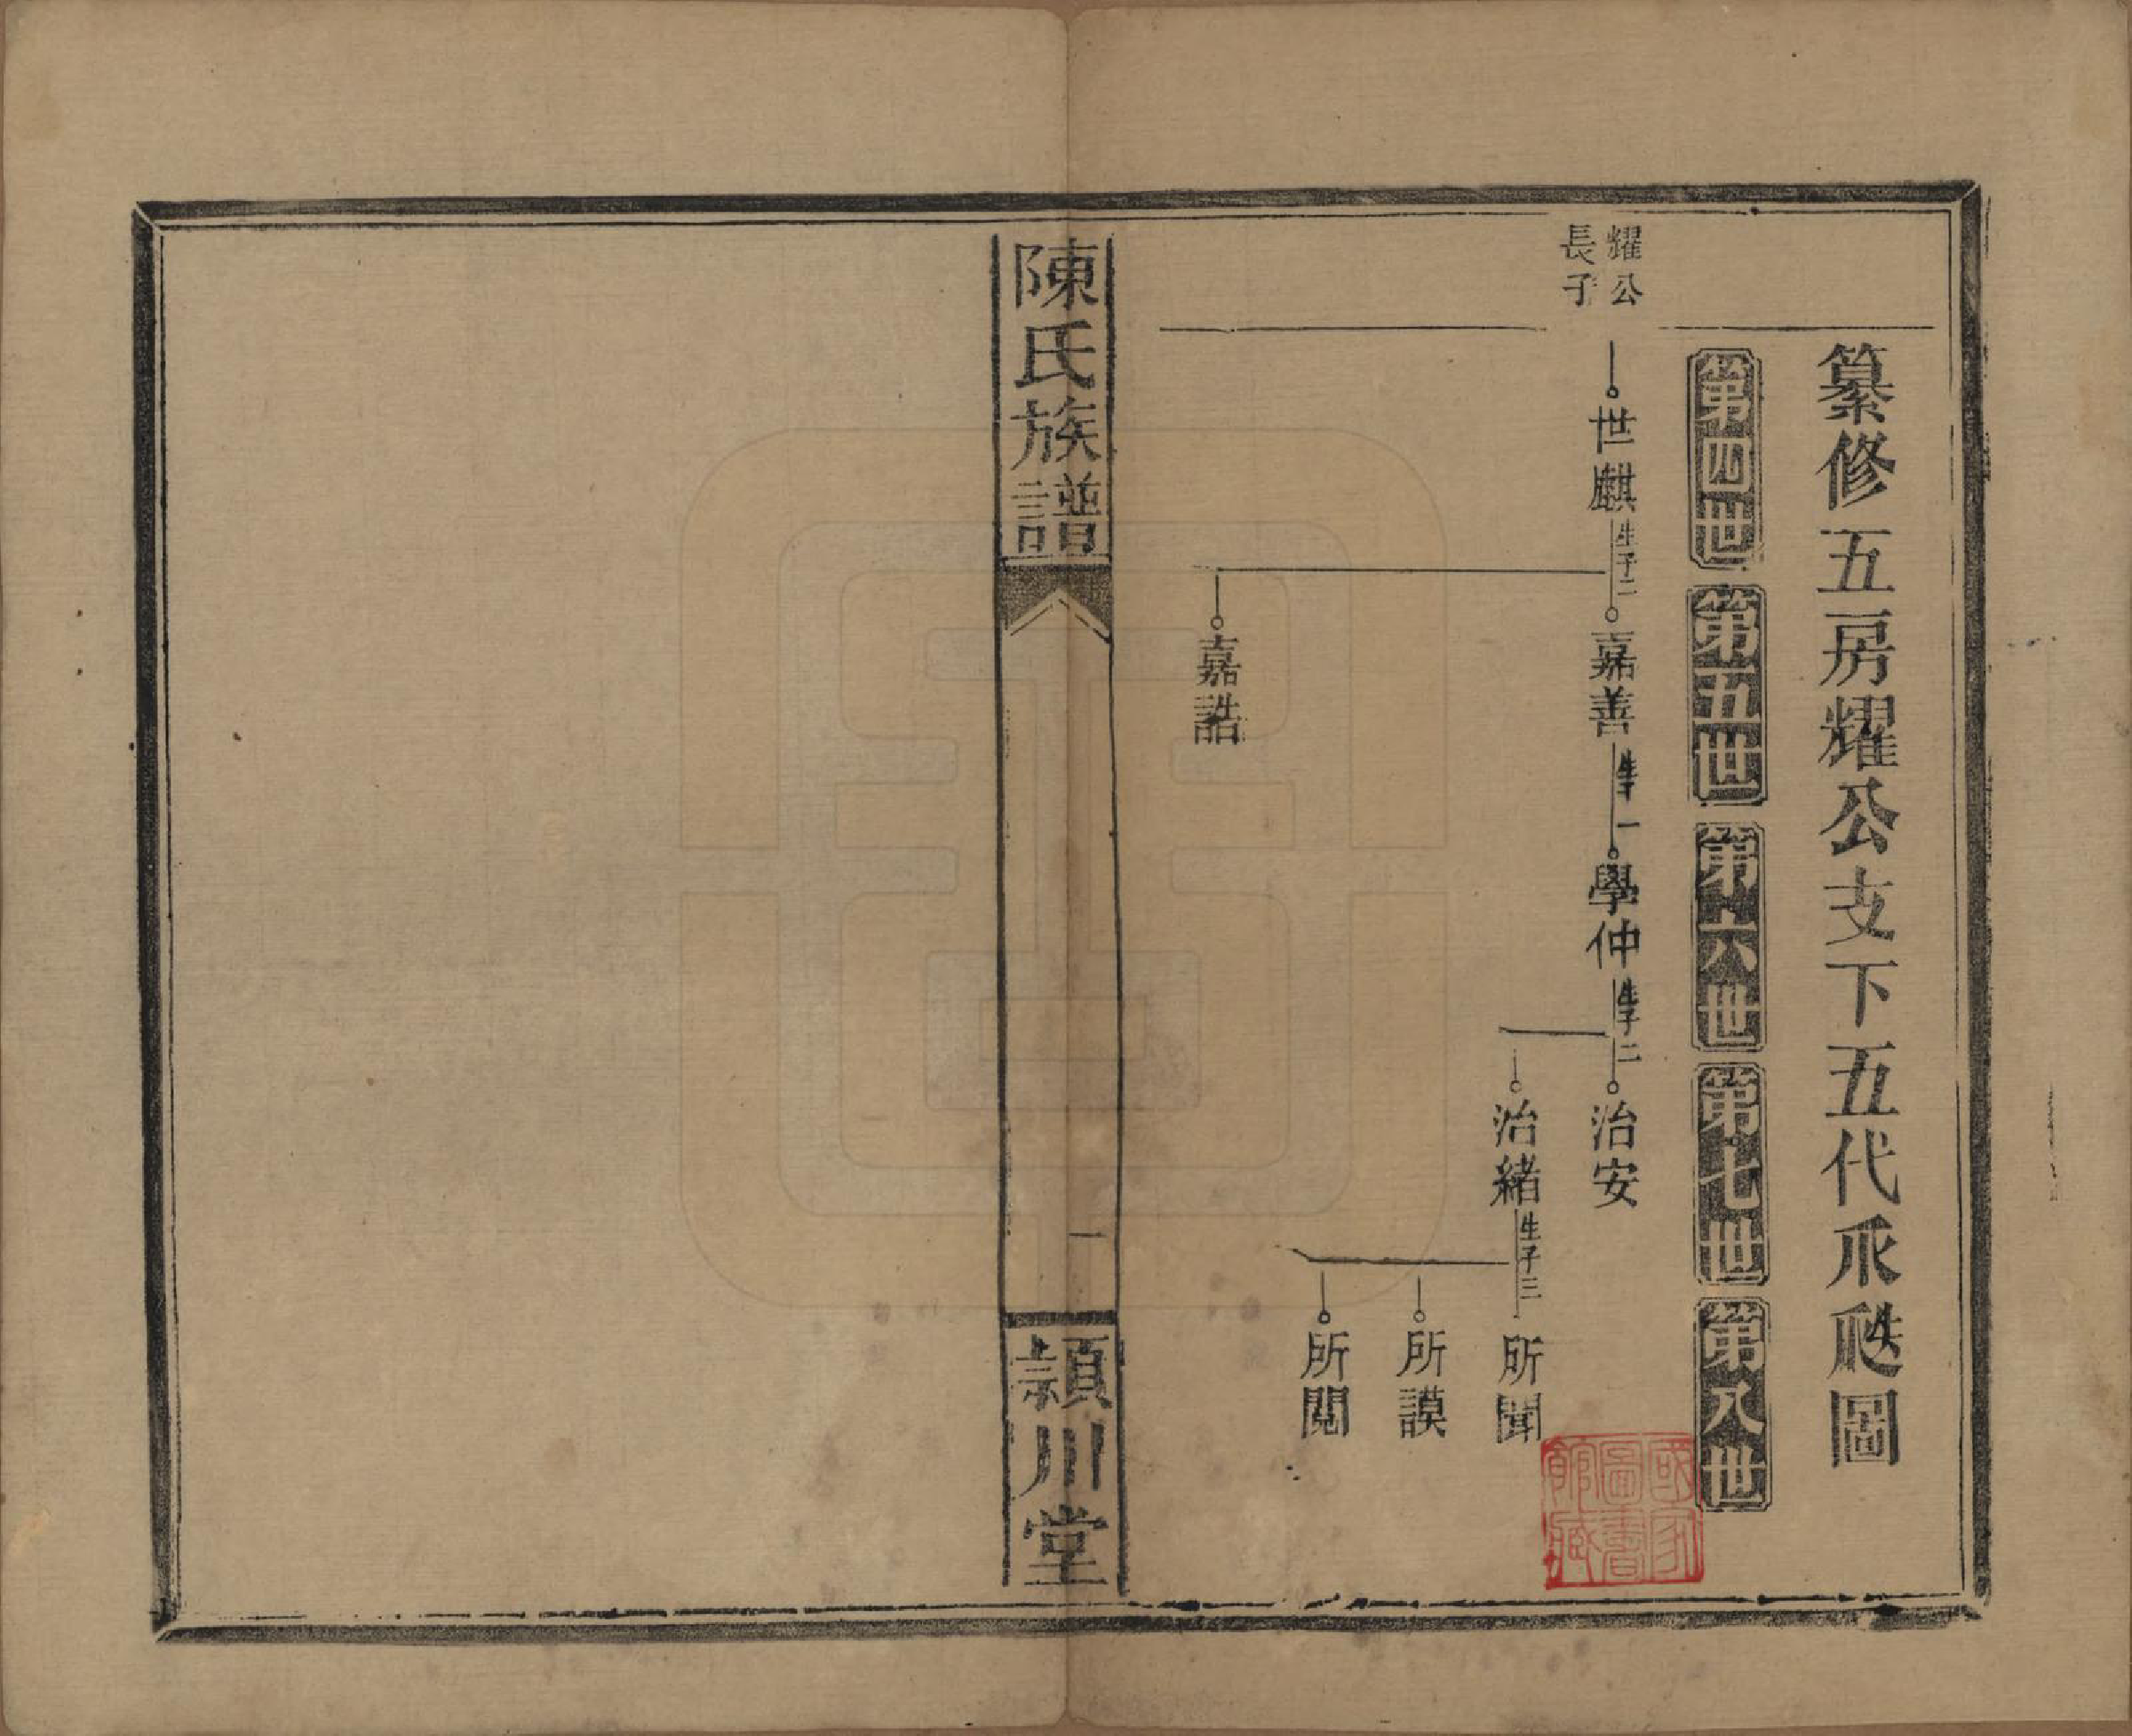 纂修五房耀公支下五代𠂢𥘶圖
第四世
第五世
第六世
第七世
第八世
耀公
長子
世麒
生子二
嘉善
生子一
學仲
生子二
治安
治緒
生子三
所聞
所謨
所閱
嘉誥
陳氏族譜
一
潁川堂
國家
圖書
館藏